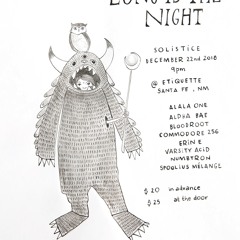 LONG IS THE
NIGHT
SOLISTICE
DECEMBER 22nd 2018
9pm
@ ETIQUETTE
SANTA FE, NM
ALALA ONE
ALPHA BAE
BLOODROOT
COMMODORE 256
ERIN E
VARSITY ACID
NUMBTRON
SPOOLIUS MÉLANGE
$20 in advance
$25 at the door